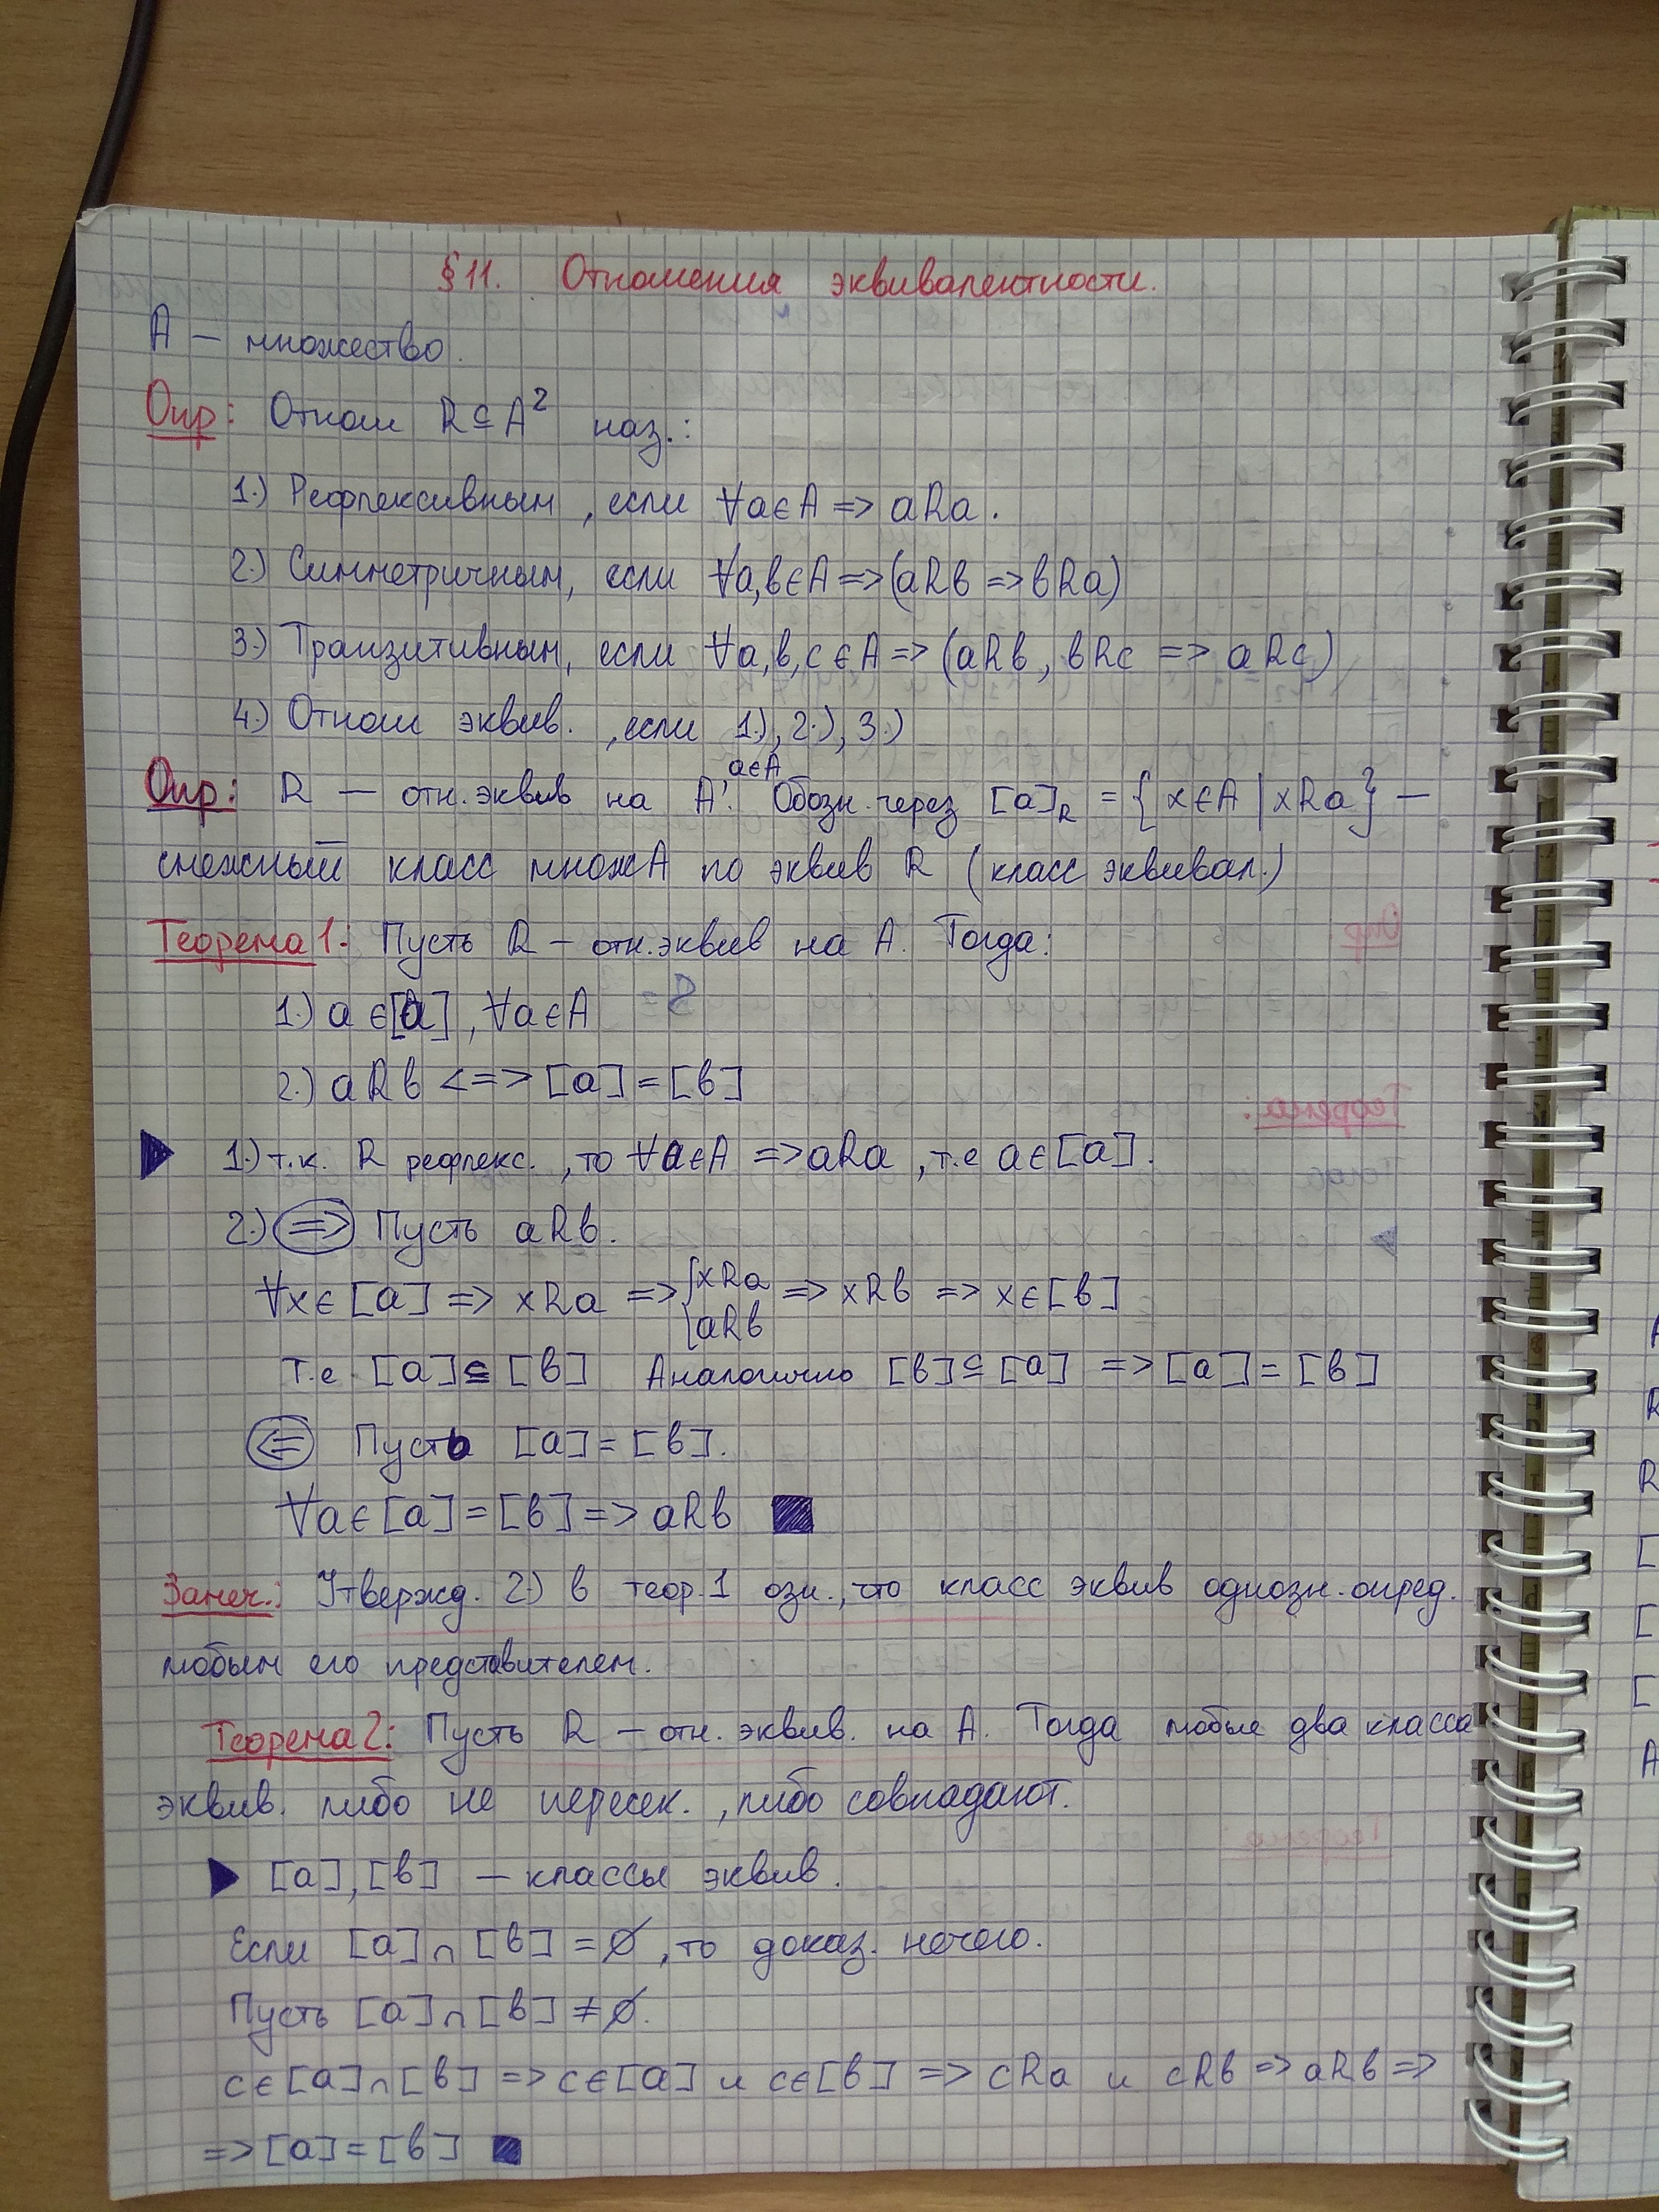 §11. Отношения эквивалентности.
A — множество.
Опр: Отнош R⊆A² наз.:
1.) Рефлексивным, если ∀a∈A => aRa.
2.) Симметричным, если ∀a,b∈A => (aRb => bRa)
3.) Транзитивным, если ∀a,b,c∈A => (aRb, bRc => aRc)
4.) Отнош эквив., если 1.), 2.), 3.)
Опр: R — отн. эквив на A, a∈A. Обозн. через [a]_R = {x∈A | xRa} —
смежный класс множ A по эквив R (класс эквивал.)
Теорема 1. Пусть R — отн. эквив на A. Тогда:
1.) a∈[a], ∀a∈A
2.) aRb <=> [a]=[b]
▶ 1.) т.к. R рефлекс., то ∀a∈A => aRa, т.е a∈[a].
2.) (=>) Пусть aRb.
∀x∈[a] => xRa => {xRa aRb => xRb => x∈[b]
Т.е [a]⊆[b] Аналогично [b]⊆[a] => [a]=[b]
(<=) Пусть [a]=[b].
∀a∈[a]=[b] => aRb ■
Замеч.: Утвержд. 2.) в теор. 1 озн., что класс эквив однозн. опред.
любым его представителем.
Теорема 2: Пусть R — отн. эквив. на A. Тогда любые два класса
эквив. либо не пересек., либо совпадают.
▶ [a], [b] — классы эквив.
Если [a]∩[b]=∅, то доказ. нечего.
Пусть [a]∩[b]≠∅.
c∈[a]∩[b] => c∈[a] и c∈[b] => cRa и cRb => aRb =>
=> [a]=[b] ■